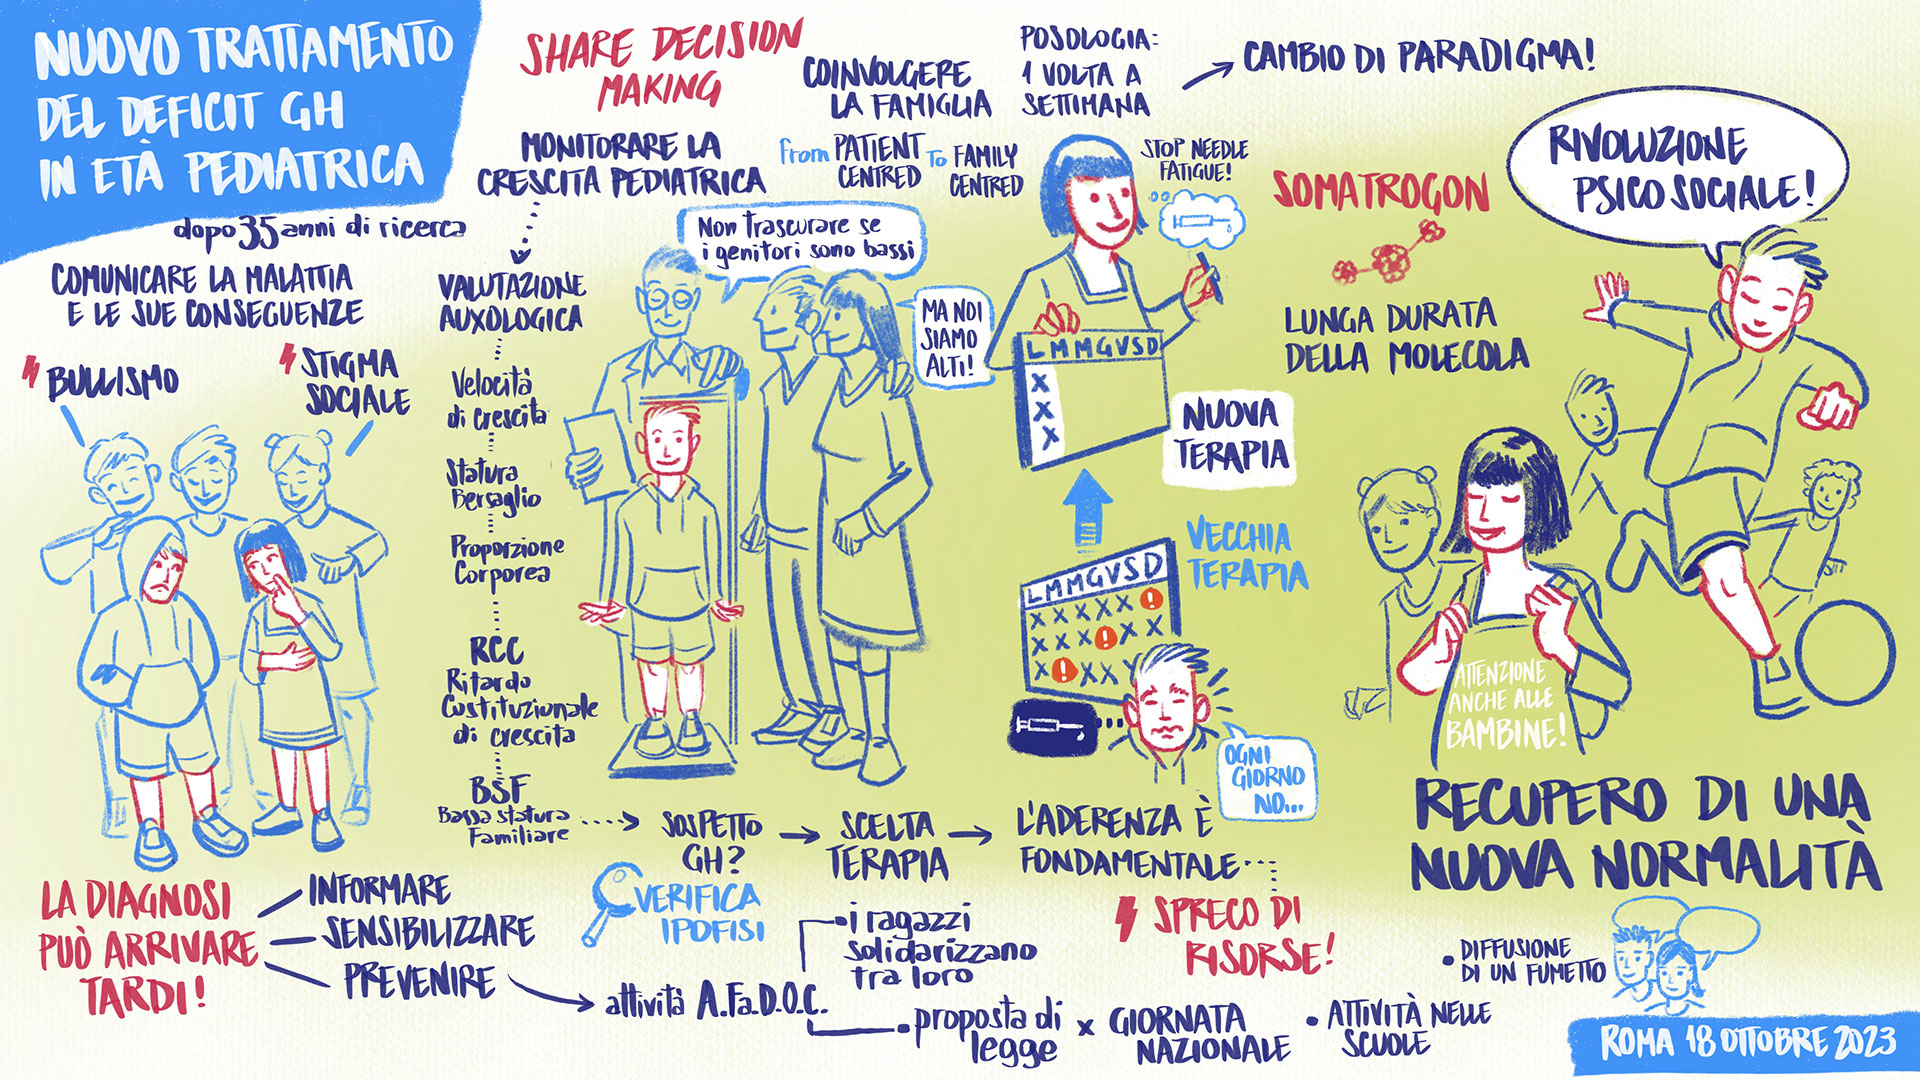 NUOVO TRATTAMENTO
DEL DEFICIT GH
IN ETÀ PEDIATRICA
dopo 35 anni di ricerca
COMUNICARE LA MALATTIA
E LE SUE CONSEGUENZE
BULLISMO
STIGMA
SOCIALE
LA DIAGNOSI
PUÒ ARRIVARE
TARDI!
INFORMARE
SENSIBILIZZARE
PREVENIRE
attività A.Fa.D.O.C.
i ragazzi
solidarizzano
tra loro
proposta di
legge
x GIORNATA
NAZIONALE
• ATTIVITÀ NELLE
SCUOLE
• DIFFUSIONE
DI UN FUMETTO
SHARE DECISION
MAKING
MONITORARE LA
CRESCITA PEDIATRICA
VALUTAZIONE
AUXOLOGICA
Velocità
di crescita
Statura
Bersaglio
Proporzione
Corporea
RCC
Ritardo
Costituzionale
di crescita
BSF
Bassa statura
Familiare
SOSPETTO
GH?
VERIFICA
IPOFISI
SCELTA
TERAPIA
L'ADERENZA È
FONDAMENTALE
SPRECO DI
RISORSE!
COINVOLGERE
LA FAMIGLIA
from PATIENT
CENTRED
To FAMILY
CENTRED
Non trascurare se
i genitori sono bassi
MA NOI
SIAMO
ALTI!
POSOLOGIA:
1 VOLTA A
SETTIMANA
CAMBIO DI PARADIGMA!
STOP NEEDLE
FATIGUE!
L M M G V S D
X
X
X
NUOVA
TERAPIA
VECCHIA
TERAPIA
L M M G V S D
X X X X X !
X X X ! X X
X ! X X X
OGNI
GIORNO
NO...
SOMATROGON
LUNGA DURATA
DELLA MOLECOLA
RIVOLUZIONE
PSICO SOCIALE!
ATTENZIONE
ANCHE ALLE
BAMBINE!
RECUPERO DI UNA
NUOVA NORMALITÀ
ROMA 18 OTTOBRE 2023